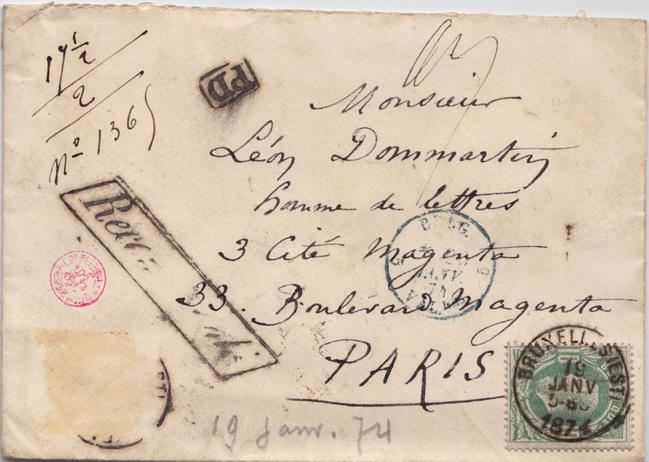 17 1/2
2
No 1365
PD
Monsieur
Léon Dommartin
homme de lettres
3 Cité Magenta
33. Boulevard Magenta
PARIS
BRUXELLES (EST)
19
JANV
1874
19 Janv. 74